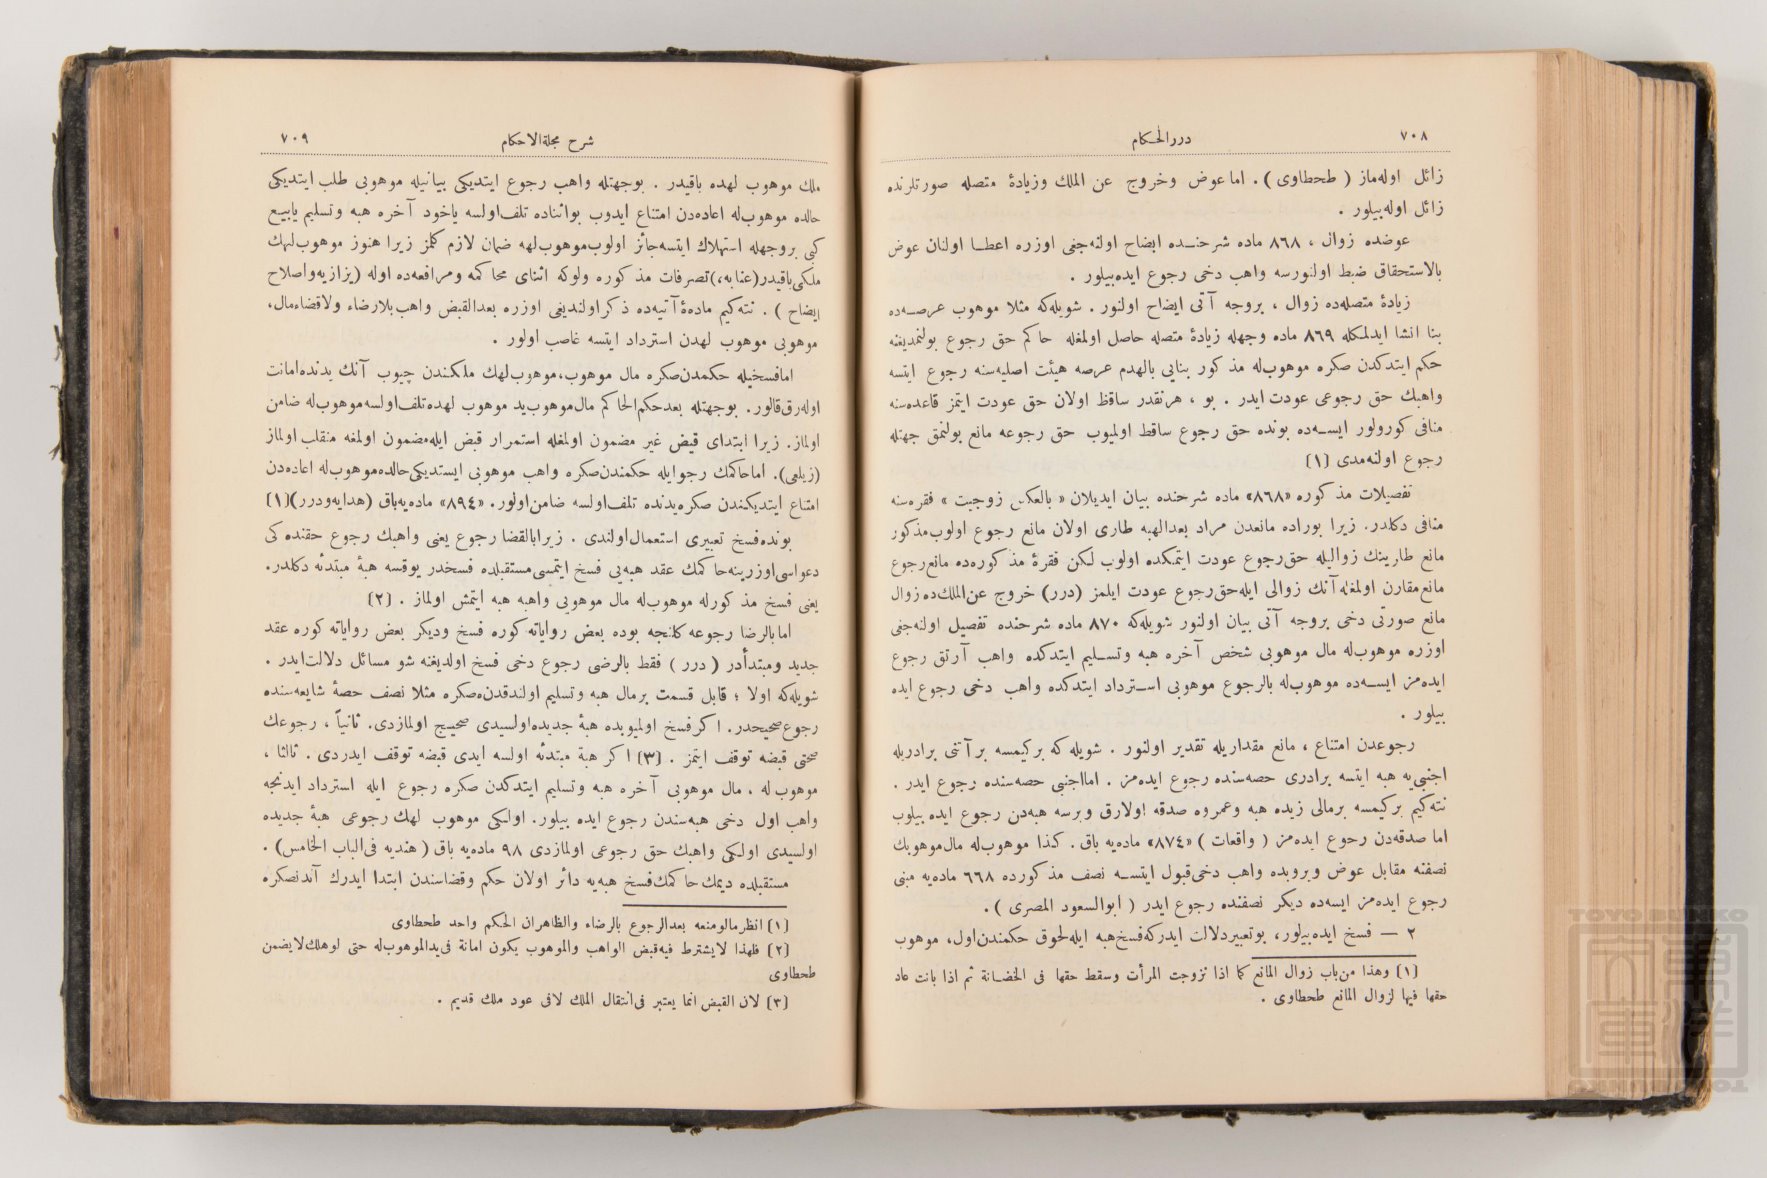 ٧٠٨
دررالحكام
زائل اوله‌ماز ( طحطاوى ) . اما عوض وخروج عن الملك وزيادۀ متصله صورتلرنده
زائل اوله‌بيلور .
عوضده زوال ، ٨٦٨ ماده شرحنـده ايضاح اولنه‌جغى اوزره اعطـا اولنان عوض
بالاستحقاق ضبط اولنورسه واهب دخى رجوع ايده‌بيلور .
زيادۀ متصله‌ده زوال ، بروجه آتى ايضاح اولنور . شويله‌كه مثلا موهوب عرصـه‌ده
بنا انشا ايدلمكله ٨٦٩ ماده وجهله زيادۀ متصله حاصل اولمغله حاكم حق رجوع بولنمديغنه
حكم ايتدكدن صكره موهوب‌له مذكور بنايى بالهدم عرصه هيئت اصليه‌سنه رجوع ايتسه
واهبك حق رجوعى عودت ايدر . بو ، هرنقدر ساقط اولان حق عودت ايتمز قاعده‌سنه
منافى كورولور ايسـه‌ده بونده حق رجوع ساقط اولميوب حق رجوعه مانع بولنمق جهتله
رجوع اولنه‌مدى (١)
تفصيلات مذكوره «٨٦٨» ماده شرحنده بيان ايديلان « بالعكس زوجيت » فقره‌سنه
منافى دكلدر. زيرا بوراده مانعدن مراد بعدالهبه طارى اولان مانع رجوع اولوب‌مذكور
مانع طارينك زواليله حق‌رجوع عودت ايتمكده اولوب لكن فقرۀ مذكوره‌ده مانع‌رجوع
مانع‌مقارن اولمغله آنك زوالى ايله‌حق‌رجوع عودت ايلمز (درر) خروج عن‌الملك‌ده زوال
مانع صورتى دخى بروجه آتى بيان اولنور شويله‌كه ٨٧٠ ماده شرحنده تفصيل اولنه‌جغى
اوزره موهوب‌له مال موهوبى شخص آخره هبه وتسـليم ايتدكده واهب آرتق رجوع
ايده‌مز ايسـه‌ده موهوب‌له بالرجوع موهوبى اسـترداد ايتدكده واهب دخى رجوع ايده
بيلور .
رجوعدن امتناع ، مانع مقداريله تقدير اولنور . شويله كه بركيمسه برآتنى برادريله
اجنبى‌يه هبه ايتسه برادرى حصه‌سنده رجوع ايده‌مز . امااجنبى حصه‌سنده رجوع ايدر .
نته‌كيم بركيمسه برمالى زيده هبه وعمروه صدقه اولارق ويرسه هبه‌دن رجوع ايده بيلوب
اما صدقه‌دن رجوع ايده‌مز ( واقعات ) «٨٧٤» ماده‌يه باق . كذا موهوب‌له مال‌موهوبك
نصفنه مقابل عوض ويروبده واهب دخى‌قبول ايتسـه نصف مذكورده ٦٦٨ ماده‌يه مبنى
رجوع ايده‌مز ايسه‌ده ديكر نصفنده رجوع ايدر ( ابوالسعود المصرى ) .
٢ — فسخ ايده‌بيلور، بوتعبيردلالت ايدركه‌فسخ‌هبه ايله‌لحوق حكمندن‌اول، موهوب
(١) وهذا من‌باب زوال المانع كما اذا تزوجت المرأت وسقط حقها فى الحضـانة ثم اذا بانت عاد
حقها فيها لزوال المانع طحطاوى .
شرح مجلةالاحكام
٧٠٩
ملك موهوب لهده باقيدر . بوجهتله واهب رجوع ايتديكى بيانيله موهوبى طلب ايتديكى
حالده موهوب‌له اعاده‌دن امتناع ايدوب بواثناده تلف‌اولسه ياخود آخره هبه وتسليم يابيـع
كبى بروجهله استهلاك ايتسه‌جائز اولوب‌موهوب‌لهه ضمان لازم كلمز زيرا هنوز موهوب‌لهك
ملكى‌باقيدر(عنايه،)تصرفات مذكوره ولوكه اثناى محاكمه ومرافعه‌ده اوله (بزازيه‌واصلاح
ايضاح ) . نته‌كيم ماده‌ۀآتيه‌ده ذكراولنديغى اوزره بعدالقبض واهب‌بلارضاء ولاقضاءمال،
موهوبى موهوب لهدن استرداد ايتسه غاصب اولور .
امافسخيله حكمدن‌صكره مال موهوب،موهوب‌لهك ملكندن چيوب آنك يدنده‌امانت
اوله‌رق‌قالور. بوجهتله بعدحكم‌الحاكم مال‌موهوب‌يد موهوب لهده‌تلف‌اولسه‌موهوب‌له ضامن
اولماز. زيرا ابتداى قبض غير مضمون اولمغله استمرار قبض ايله‌مضمون اولمغه منقلب اولماز
(زيلعى). اماحاكمك رجوايله حكمندن‌صكره واهب موهوبى ايستديكى‌حالده‌موهوب‌له اعاده‌دن
امتناع ايتديكندن صكره‌يدنده تلف‌اولسه ضامن‌اولور. «٨٩٤» ماده‌يه‌باق (هدايه‌ودرر)(١)
بونده‌فسخ تعبيرى استعمال‌اولندى . زيرابالقضا رجوع يعنى واهبك رجوع حقنده كى
دعواسى‌اوزرينه‌حاكمك عقد هبه‌يى فسخ ايتمسى‌مستقبلده فسخدر يوقسه هبۀ مبتدئه دكلدر.
يعنى فسخ مذكورله موهوب‌له مال موهوبى واهبه هبه ايتمش اولماز . (٢)
امابالرضا رجوعه كلنجه بوده بعض رواياته‌كوره فسخ وديكر بعض رواياته كوره عقد
جديد ومبتدأدر ( درر ) فقط بالرضى رجوع دخى فسخ اولديغنه شو مسائل دلالت‌ايدر .
شويله‌كه اولا ؛ قابل قسمت برمال هبه وتسليم اولندقدن‌صكره مثلا نصف حصۀ شايعه‌سنده
رجوع‌صحيحدر. اكرفسخ اولميوبده هبۀ جديده‌اولسيدى صحيح اولمازدى. ثانياً ، رجوعك
صحتى قبضه توقف ايتمز . (٣) اكر هبۀ مبتدئه اولسه ايدى قبضه توقف ايدردى . ثالثا ،
موهوب‌له ، مال موهوبى آخره هبه وتسليم ايتدكدن صكره رجوع ايله استرداد ايدنجه
واهب اول دخى هبه‌سندن رجوع ايده بيلور. اولكى موهوب لهك رجوعى هبۀ جديده
اولسيدى اولكى واهبك حق رجوعى اولمازدى ٩٨ ماده‌يه باق ( هنديه فى‌الباب الخامس) .
مستقبلده ديمك حاكمك‌فسخ هبه‌يه دائر اولان حكم وقضاسندن ابتدا ايدرك آندنصكره
(١) انظرمالومنعه بعدالرجوع بالرضاء والظاهران الحكم واحد طحطاوى
(٢) فلهذا لايشترط فيه‌قبض الواهب والموهوب يكون امانة فى‌يدالموهوب‌له حتى لوهلك‌لايضمن
طحطاوى
(٣) لان القبض انما يعتبر فى‌انتقال الملك لافى عود ملك قديم .
TOYO BUNKO